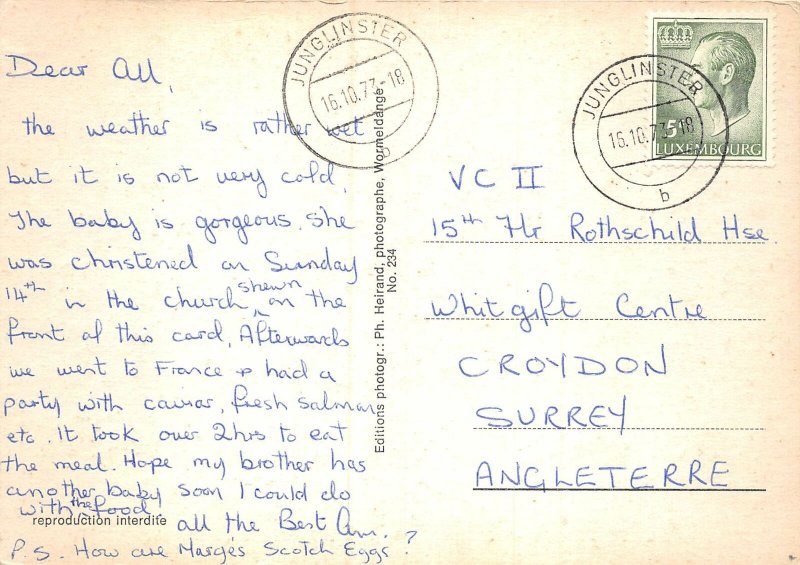 Dear All,
the weather is rather wet
but it is not very cold.
The baby is gorgeous. She
was christened on Sunday
14th in the church shewn on the
front of this card. Afterwards
we went to France & had a
party with caviar, fresh salmon
etc. It took over 2hrs to eat
the meal. Hope my brother has
another baby soon I could do
with the food
all the Best Ann.
P.S. How are Marge's Scotch Eggs?
reproduction interdite
Editions photogr.: Ph. Heirand, photographe, Wormeldange
No. 234
JUNGLINSTER
16.10.73-18
b
JUNGLINSTER
16.10.73-18
b
5F
LUXEMBOURG
VC II
15th Flr Rothschild Hse
Whitgift Centre
CROYDON
SURREY
ANGLETERRE